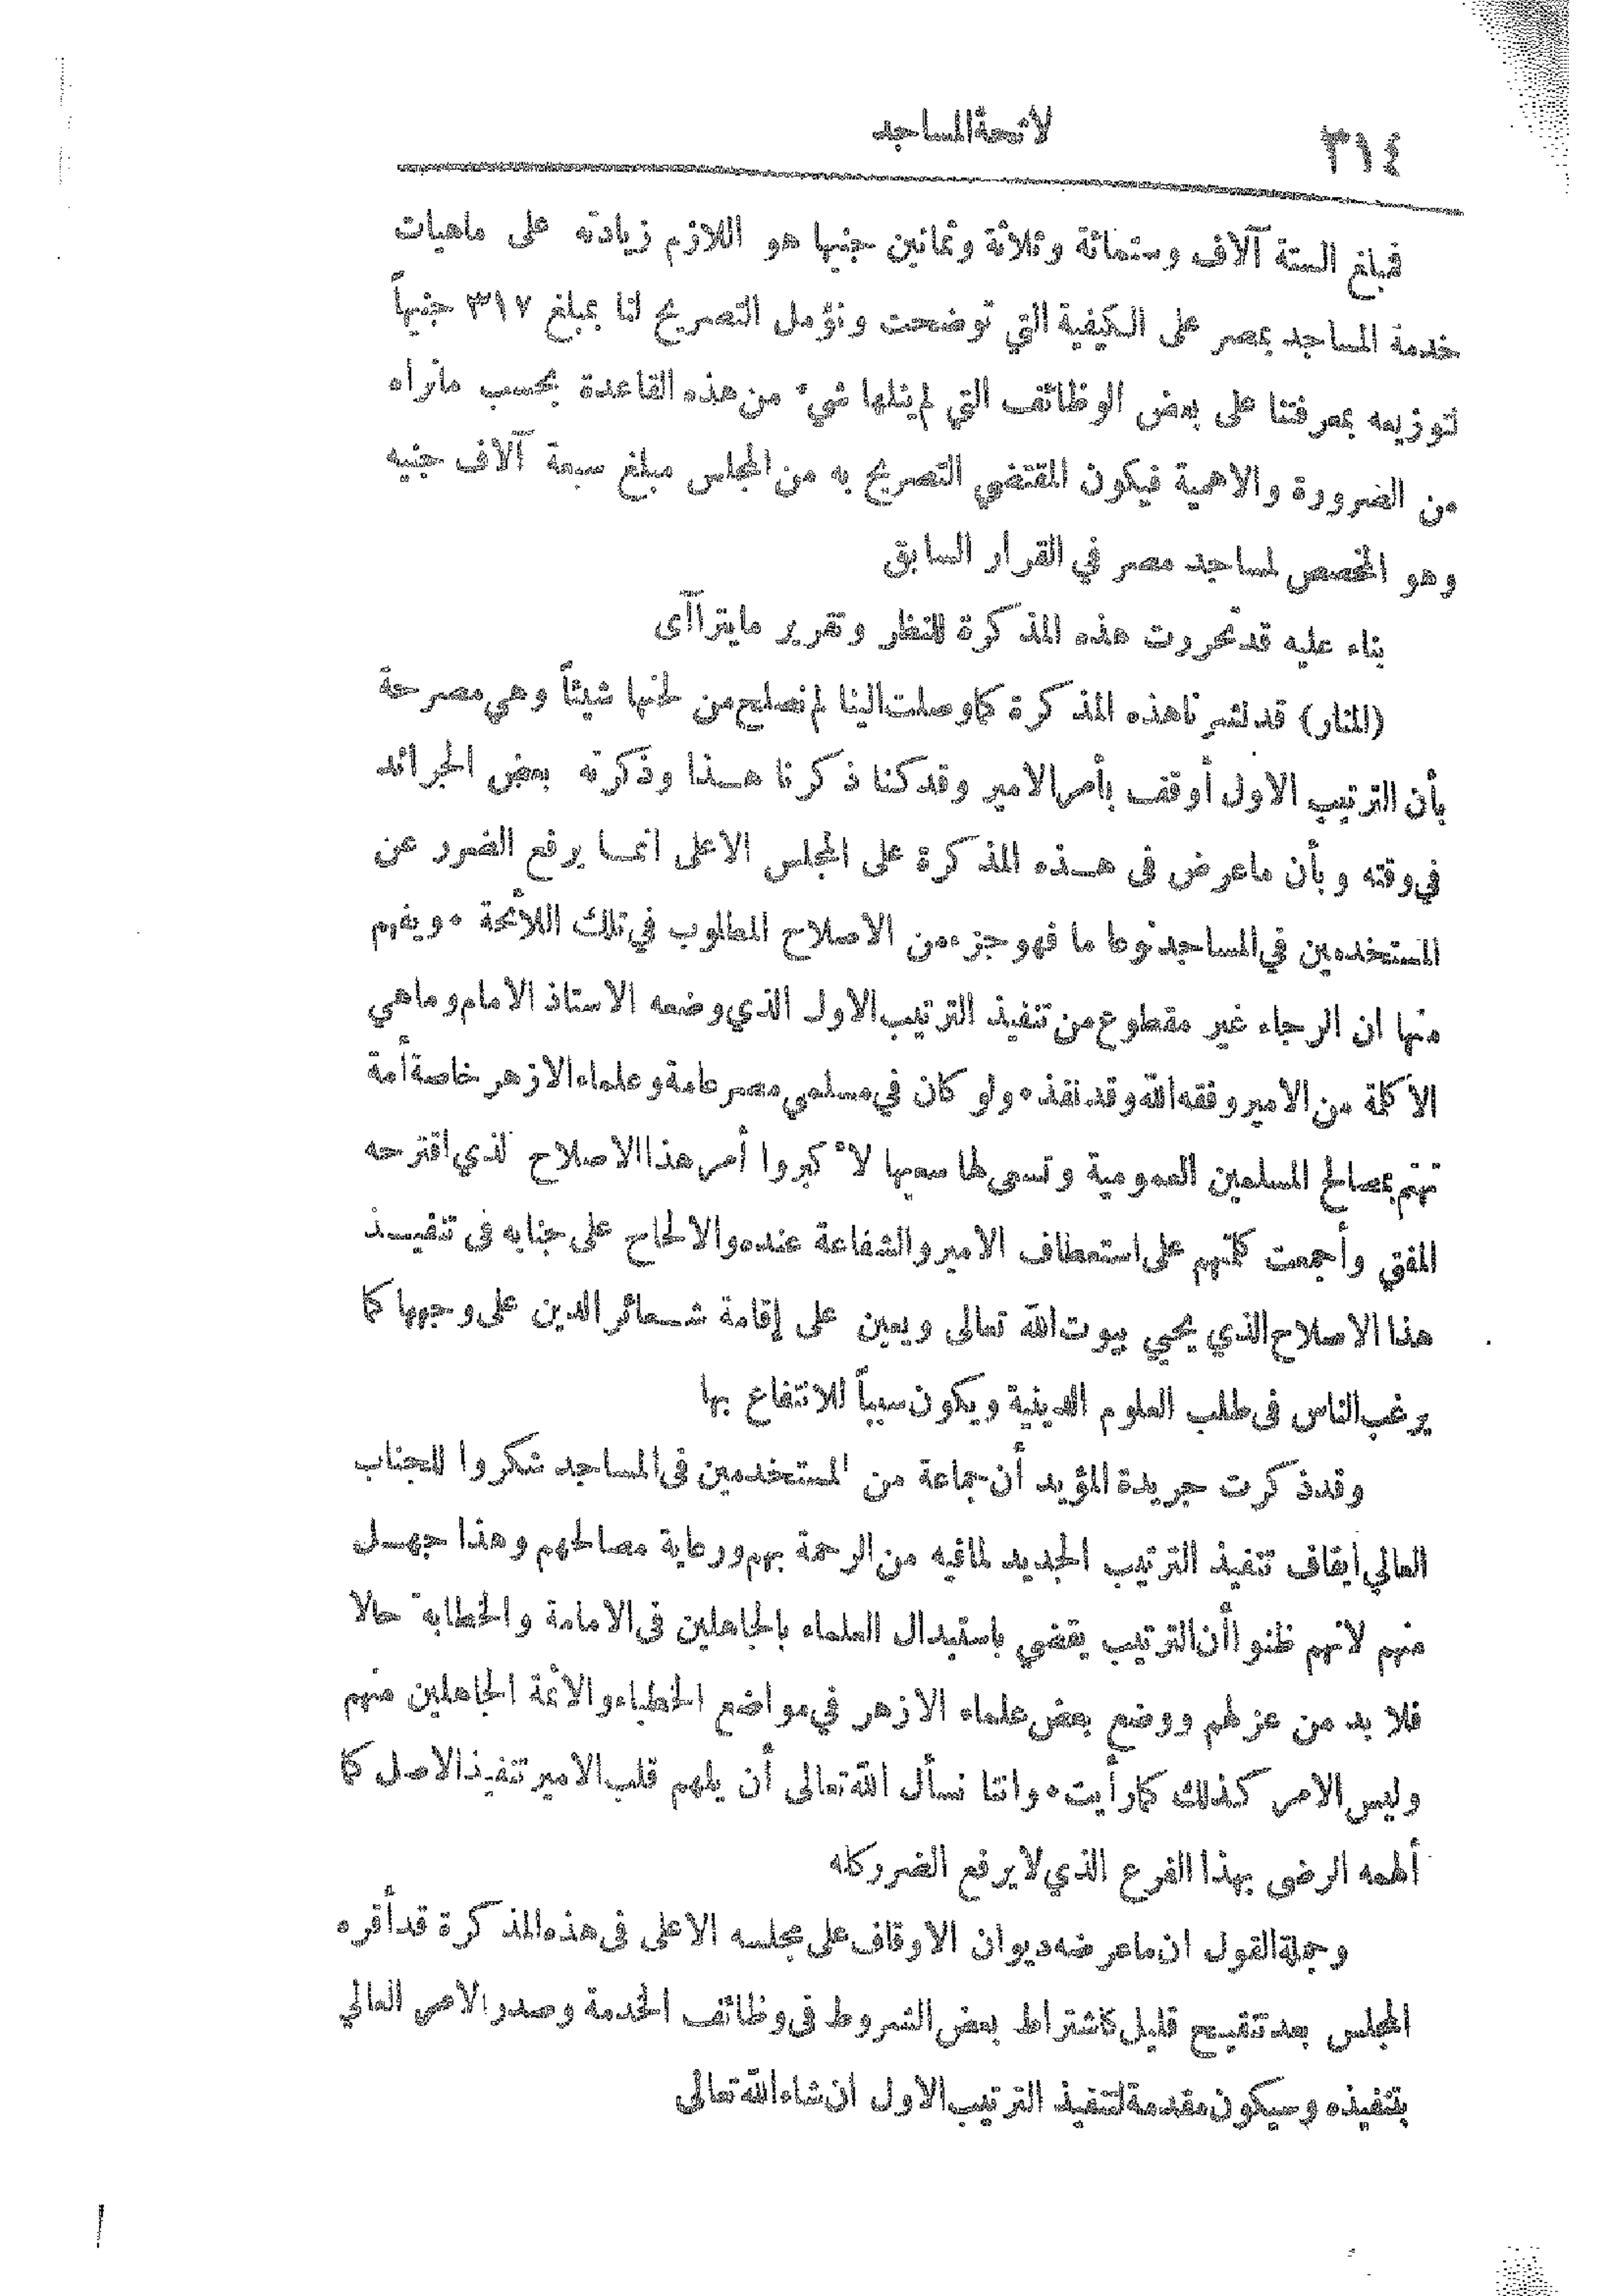 ٣١٤
لائحة المساجد
فمبلغ الستة آلاف وستمائة وثلاثة وثمانين جنيها هو اللازم زيادته على ماهيات
خدمة المساجد بمصر على الكيفية التي توضحت ونؤمل التصريح لنا بمبلغ ٣١٧ جنيهاً
لتوزيعه بمعرفتنا على بعض الوظائف التي لم ينلها شيء من هذه القاعدة بحسب ما نراه
من الضرورة والاهمية فيكون المقتضي التصريح به من المجلس مبلغ سبعة آلاف جنيه
وهو المخصص لمساجد مصر في القرار السابق
بناء عليه قد تحررت هذه المذكرة للنظر وتقرير ما يتراآى
(المنار) قد نشرنا هذه المذكرة كما وصلت الينا لم نصلح من لحنها شيئاً وهي مصرحة
بأن الترتيب الاول أوقف بأمر الامير وقد كنا ذكرنا هذا وذكرته بعض الجرائد
في وقته وبأن ما عرض في هذه المذكرة على المجلس الاعلى انما يرفع الضرر عن
المستخدمين في المساجد نوعا ما فهو جزء من الاصلاح المطلوب في تلك اللائحة ٠ ويفهم
منها ان الرجاء غير مقطوع من تنفيذ الترتيب الاول الذي وضعه الاستاذ الامام وما هي
الا كلمة من الامير وفقه الله وقد نفذ ٠ ولو كان في مسلمي مصر عامة وعلماء الازهر خاصة أمة
تهتم بمصالح المسلمين العمومية وتسعى لها سعيها لأكبروا أمر هذا الاصلاح الذي اقترحه
المفتي وأجمعت كلمتهم على استعطاف الامير والشفاعة عنده والالحاح على جنابه في تنفيذ
هذا الاصلاح الذي يحيي بيوت الله تعالى ويعين على إقامة شعائر الدين على وجهها كما
يرغب الناس في طلب العلوم الدينية ويكون سبباً للانتفاع بها
وقد ذكرت جريدة المؤيد أن جماعة من المستخدمين في المساجد شكروا للجناب
العالي ايقاف تنفيذ الترتيب الجديد لما فيه من الرحمة بهم ورعاية مصالحهم وهذا جهل
منهم لانهم ظنوا أن الترتيب يقضي باستبدال العلماء بالجاهلين في الامامة والخطابة حالا
فلا بد من عزلهم ووضع بعض علماء الازهر في مواضع الخطباء والائمة الجاهلين منهم
وليس الامر كذلك كما رأيت ٠ واننا نسأل الله تعالى أن يلهم قلب الامير تنفيذ الاصل كما
ألهمه الرضى بهذا الفرع الذي لا يرفع الضرر كله
وجملة القول ان ما عرضه ديوان الاوقاف على مجلسه الاعلى في هذه المذكرة قد أقره
المجلس بعد تنقيح قليل كاشتراط بعض الشروط في وظائف الخدمة وصدر الامر العالي
بتنفيذه وسيكون مقدمة لتنفيذ الترتيب الاول ان شاء الله تعالى